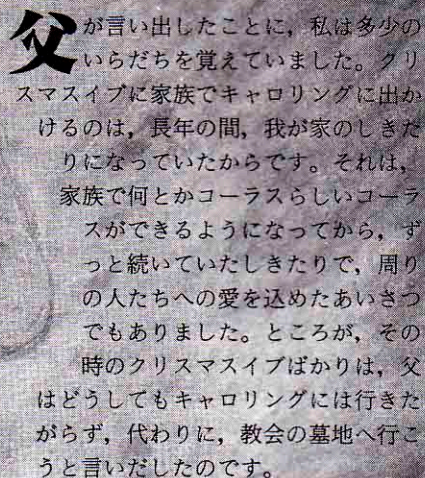 父が言い出したことに，私は多少の
いらだちを覚えていました。クリ
スマスイブに家族でキャロリングに出か
けるのは，長年の間，我が家のしきた
りになっていたからです。それは，
家族で何とかコーラスらしいコーラ
スができるようになってから，ず
っと続いていたしきたりで，周り
の人たちへの愛を込めたあいさつ
でもありました。ところが，その
時のクリスマスイブばかりは，父
はどうしてもキャロリングには行きた
がらず，代わりに，教会の墓地へ行こ
うと言いだしたのです。